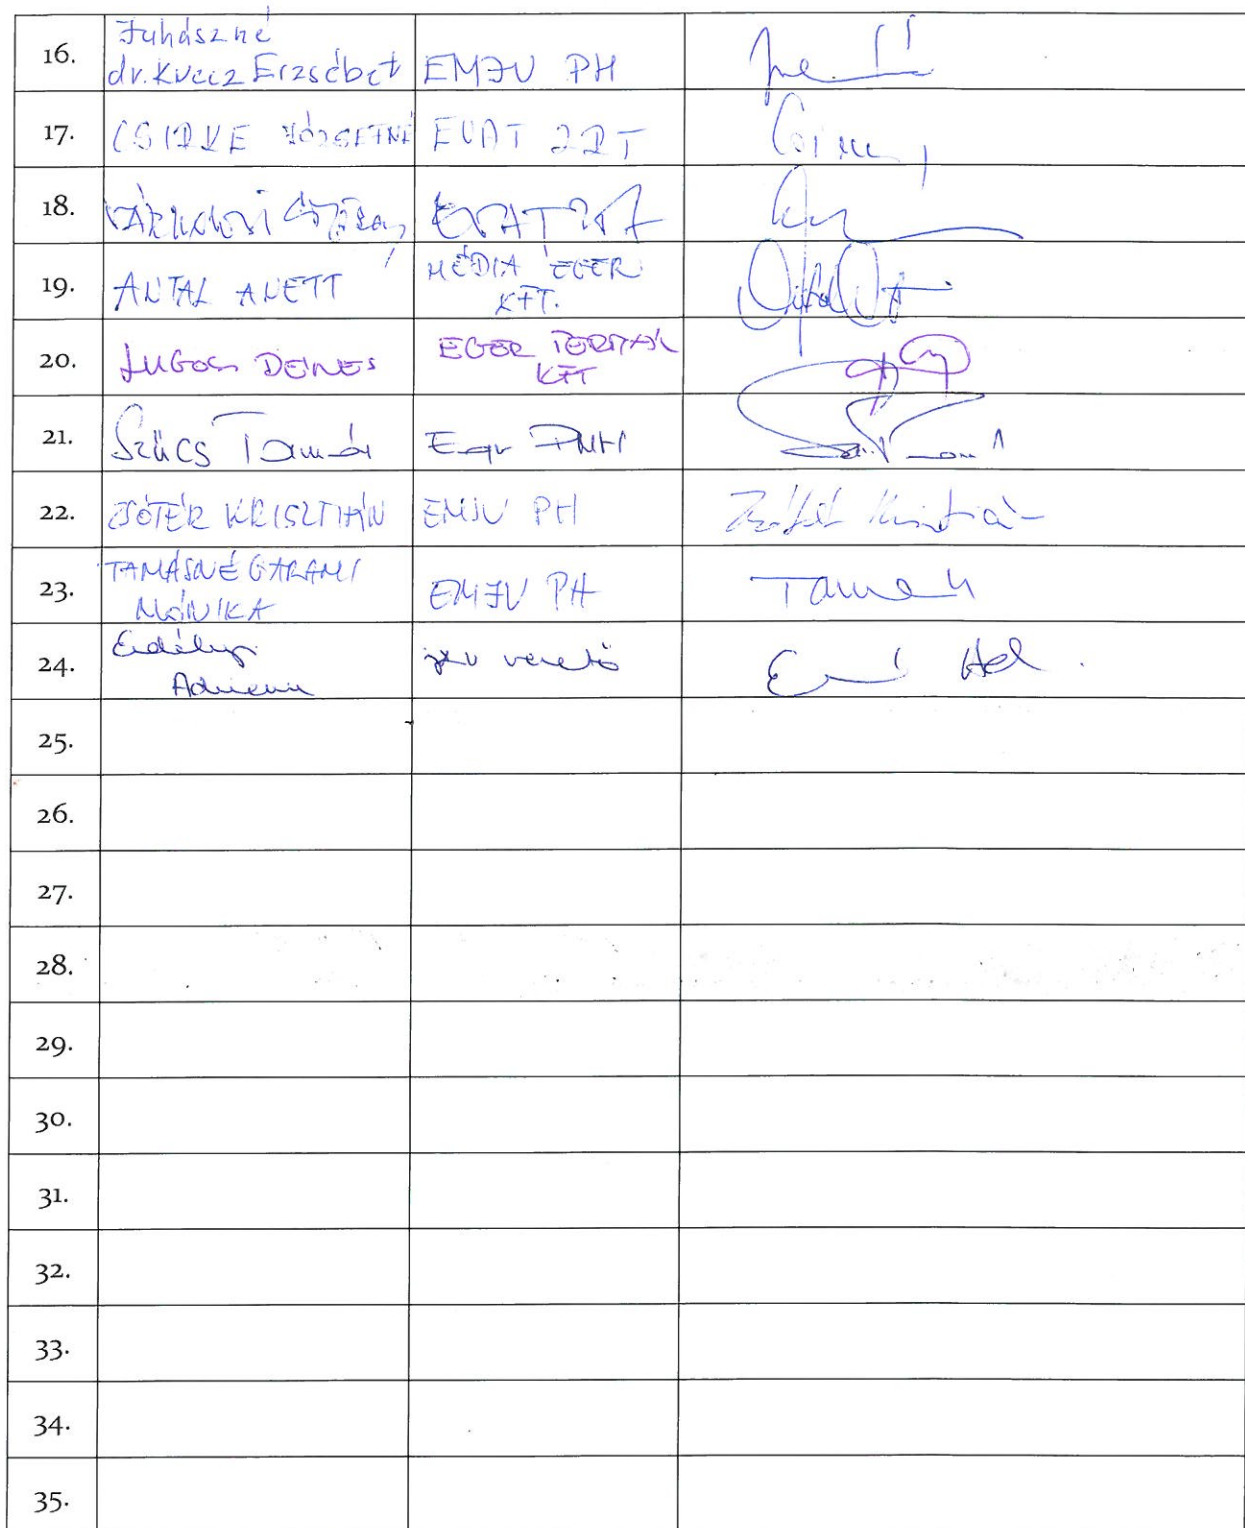 16.
Juhászné
dr. Kvecz Erzsébet EMJV PH
17. CSIRKE JÓZSEFNÉ EVAT ZRT
18. EVAT ZRT
19. ANTAL ANETT
MÉDIA EGER
KFT.
20. LUGOSI DÉNES
EGER TERMÁL
KFT
21. Szűcs Tamás Eger
22. ZSÓTÉR KRISZTIÁN EMJV PH Zsótér Krisztián
23.
TAMÁSNÉ GARAMI
MÓNIKA
EMJV PH
24.
Erdélyi
Adrienn
jkv vezető
25.
26.
27.
28.
29.
30.
31.
32.
33.
34.
35.